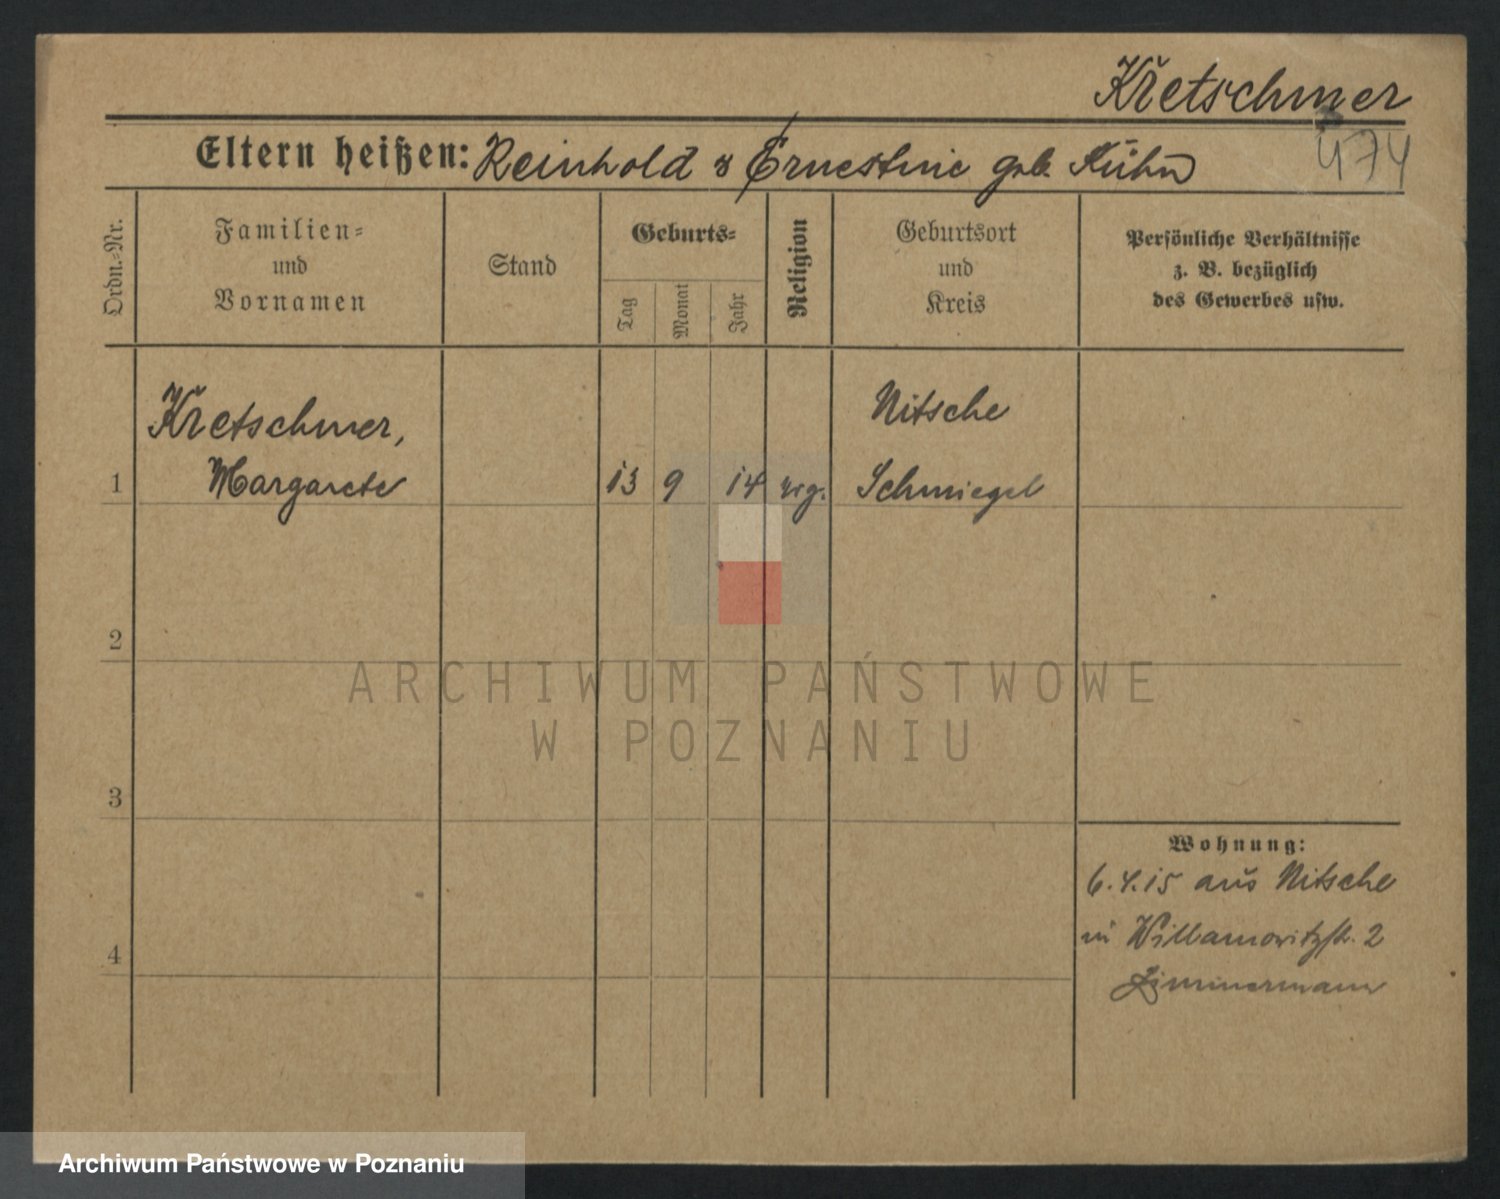 Kretschmer
474
Eltern heißen: Reinhold & Ernestine geb. Kühn
Ordn.-Nr.
Familien-
und
Vornamen
Stand
Geburts-
Tag
Monat
Jahr
Religion
Geburtsort
und
Kreis
Persönliche Verhältnisse
z. B. bezüglich
des Gewerbes usw.
Kretschmer,
Nitsche
1 Margarete 13 9 14 Schmiegel
2
ARCHIWUM PAŃSTWOWE
W POZNANIU
3
Wohnung:
6.4.15 aus Nitsche
Willamowitzstr. 2
4
Zimmermann
Archiwum Państwowe w Poznaniu